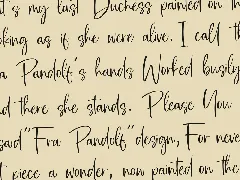 t's my last Duchess painted on th
oking as if she were alive. I call th
a Pandolf's hands Worked busily
nd there she stands. Please You
said "Fra Pandolf" design, For neve
t piece a wonder, now painted on the